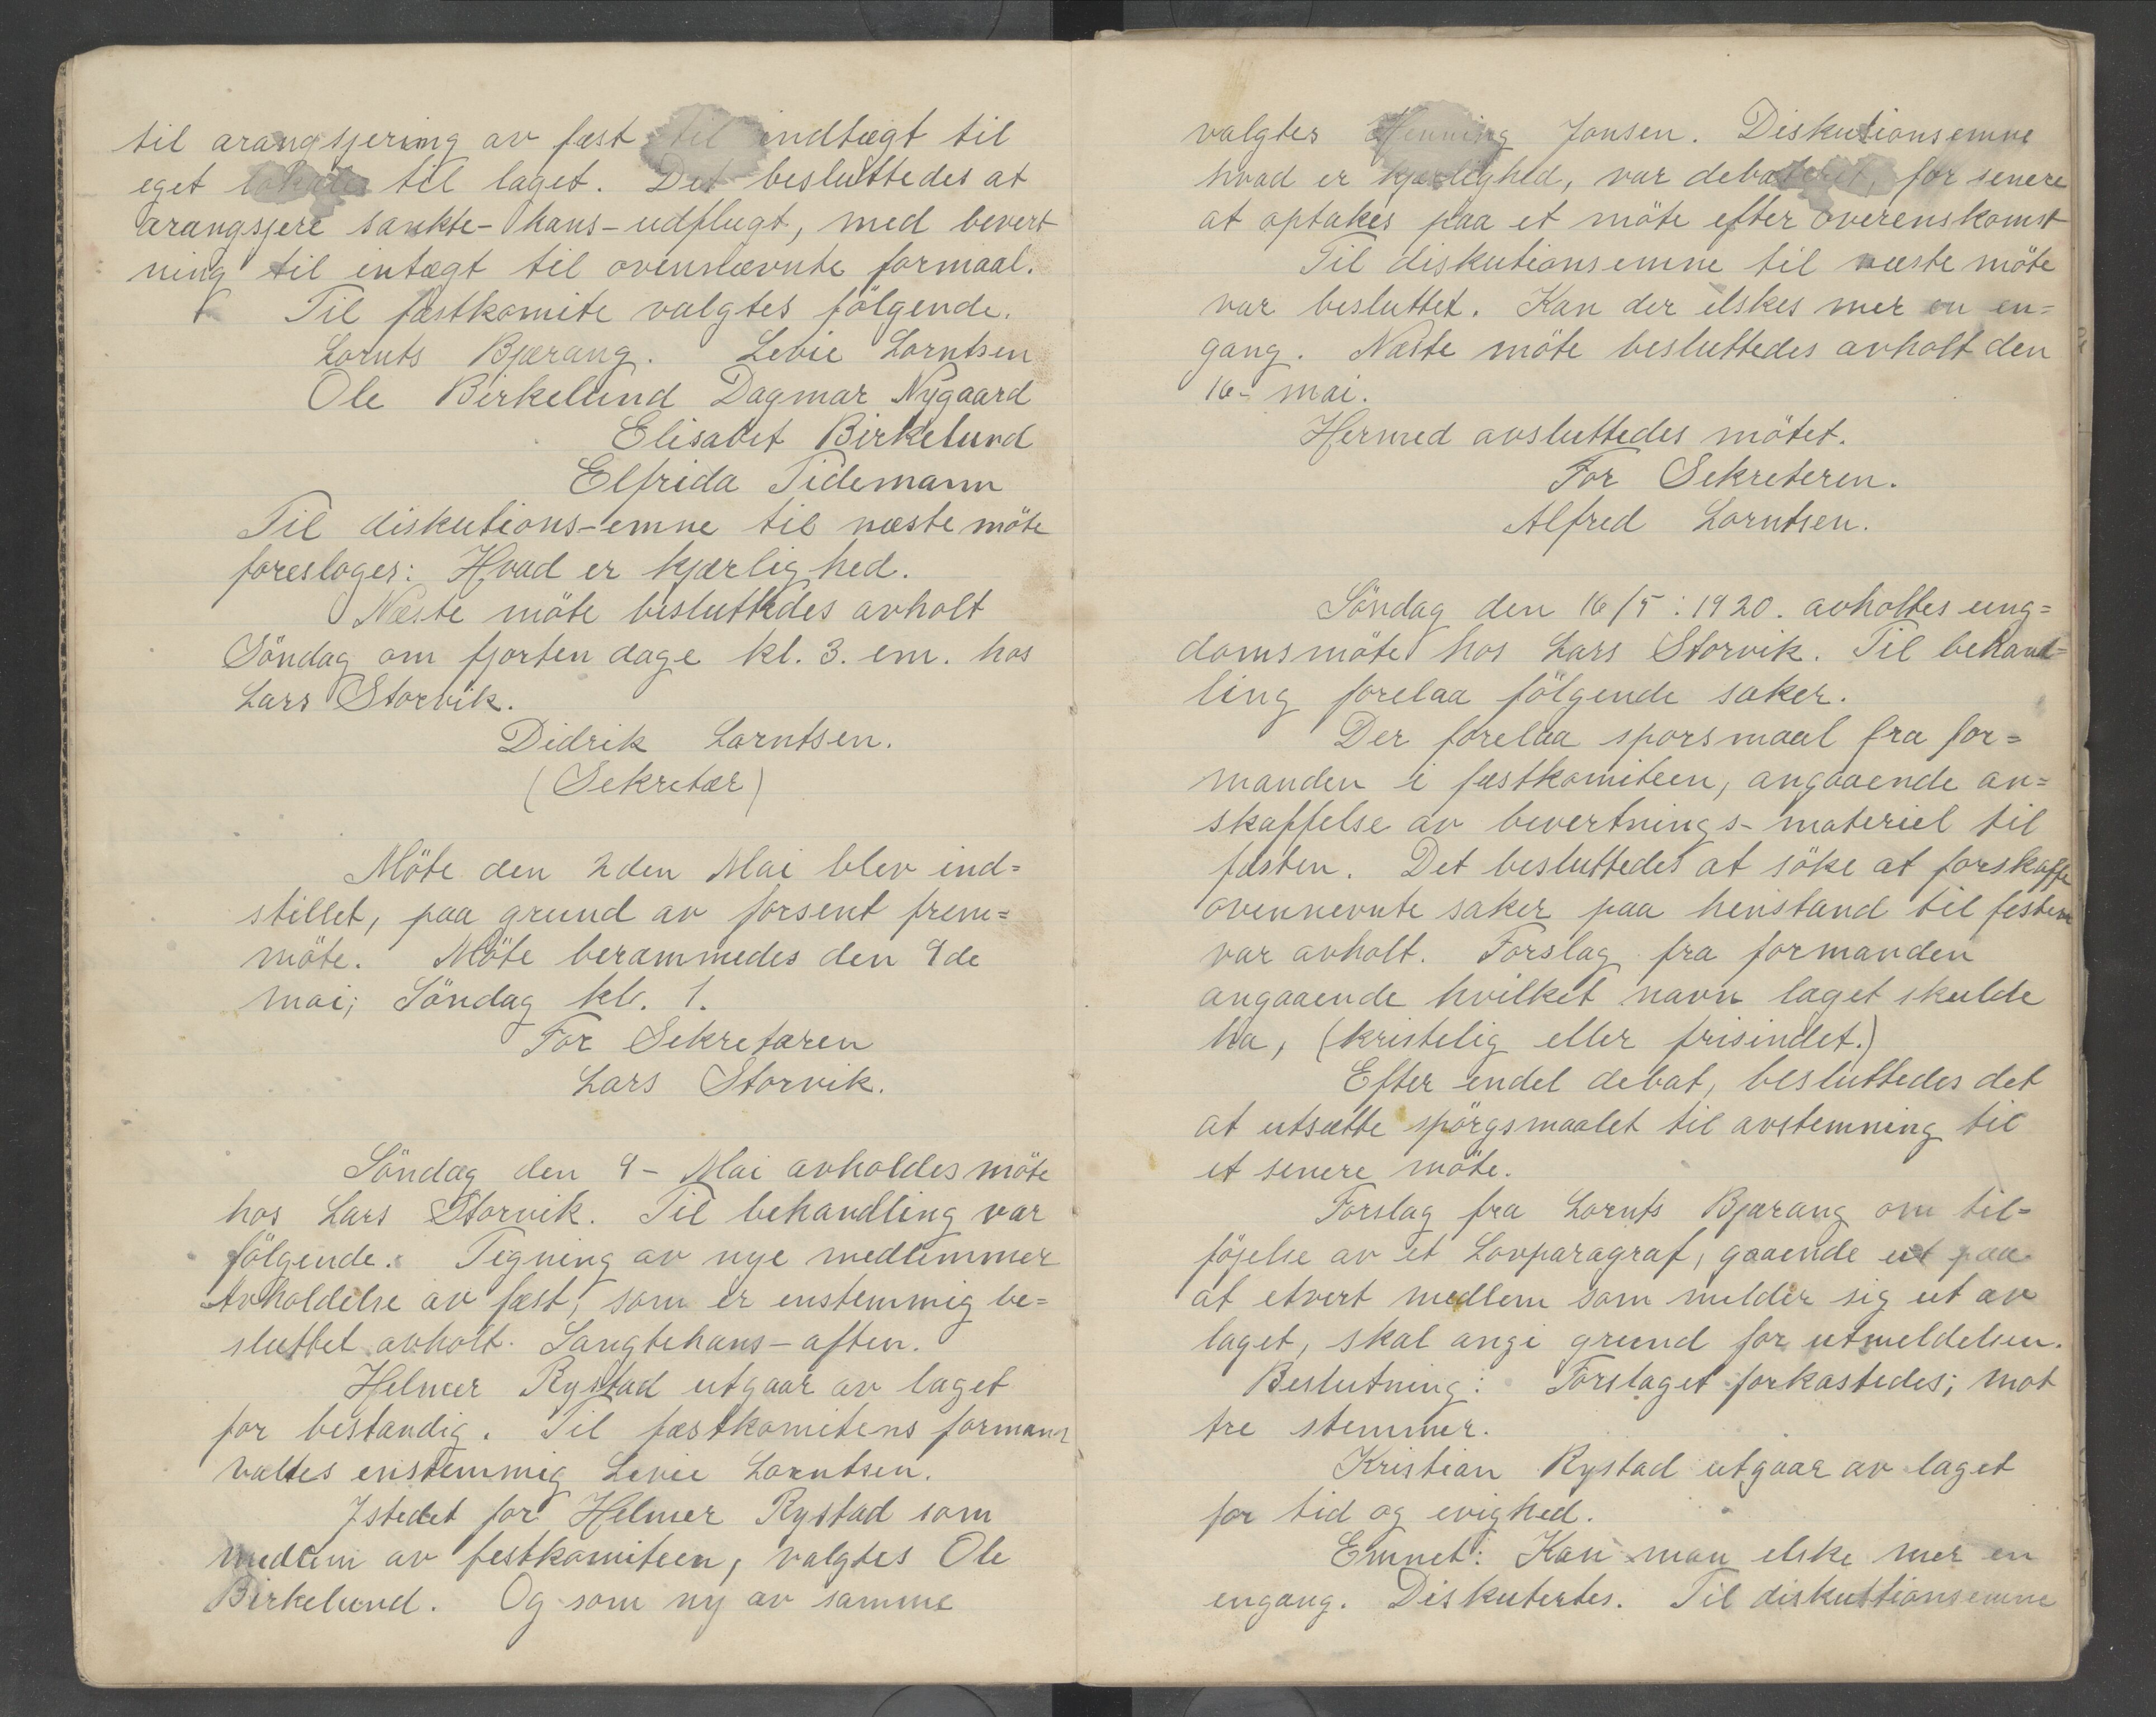 til arangsjering av fæst til indtægt til
eget lokale til laget. Det besluttedes at
arangsjere sankte-hans-udflugt, med bevert
ning til intægt til ovennævnte formaal.
Til fæstkomite valgtes fölgende.
Lornts Bjærang. Levie Lorntsen
Ole Birkelund Dagmar Nygaard
Elisabet Birkelund
Elfrida Tidemann
Til diskutions-emne til næste möte
foresloges: Hvad er kjærlighed.
Næste möte besluttedes avholt
Söndag om fjorten dage kl. 3. em. hos
Lars Storvik.
Didrik Lorntsen.
(Sekretær)
Möte den 2den Mai blev ind=
stillet, paa grund av forsent frem=
möte. Möte berammedes den 9de
mai; Söndag kl. 1.
For Sekretæren
Lars Storvik.
Söndag den 9- Mai avholdes möte
hos Lars Storvik. Til behandling var
fölgende. Tegning av nye medlemmer
Avholdelse av fæst, som er enstemmig be=
sluttet avholt. Sangtehans-aften.
Helmer Rystad utgaar av laget
for bestandig. Til fæstkomitens formann
valtes enstemmig Levie Lorntsen.
Istedet for Helmer Rystad som
medlem av festkomiteen, valgtes Ole
Birkelund. Og som ny av samme
valgtes Henning Jonsen. Diskutionsemne
hvad er kjærlighed, var debateret, for senere
at optakes paa et möte efter overenskomst
Til diskutionsemne til næste möte
var besluttet. Kan der elskes mer en en=
gang. Næste möte besluttedes avholt den
16- mai.
Hermed avsluttedes mötet.
For Sekreteren.
Alfred Lorntsen.
Söndag den 16/5: 1920. avholtes ung=
domsmöte hos Lars Storvik. Til behand=
ling forelaa fölgende saker.
Der forelaa sporsmaal fra for=
manden i fæstkomiteen, angaaende an=
skaffelse av bevertnings-materiel til
fæsten. Det besluttedes at söke at forskaffe
ovennevnte saker paa henstand til festen
var avholt. Forslag fra formanden
angaaende hvilket navn laget skulde
ha, (kristelig eller frisindet.)
Efter endel debat, besluttedes det
at utsætte spörgsmaalet til avstemning til
et senere möte.
Forslag fra Lornts Bjærang om til=
föjelse av et Lovparagraf, gaaende ut paa
at etvert medlem som melder sig ut av
laget, skal angi grund for utmeldelsen.
Beslutning: Forslaget forkastedes; mot
tre stemmer.
Kristian Rystad utgaar av laget
for tid og evighed.
Emnet: Kan man elske mer en
engang. Diskutertes. Til diskuttionsemne